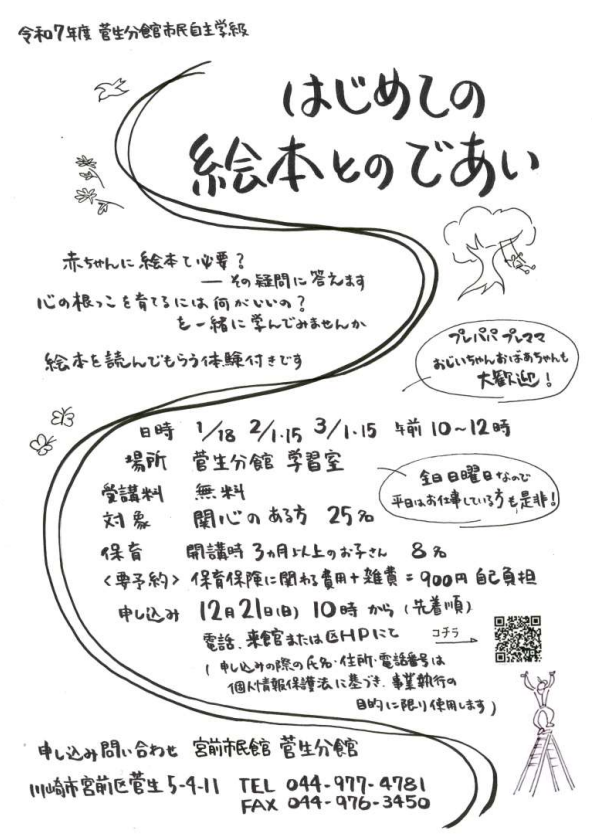 令和7年度 菅生分館市民自主学級
はじめての
絵本とのであい
赤ちゃんに絵本て必要?
― その疑問に答えます
心の根っこを育てるには何がいいの?
を一緒に学んでみませんか
絵本を読んでもらう体験付きです
プレパパ プレママ
おじいちゃんおばあちゃんも
大歓迎!
日時 1/18 2/1・15 3/1・15 午前10~12時
場所 菅生分館 学習室
受講料 無料
対象 関心のある方 25名
全日日曜日なので
平日はお仕事している方も是非!
保育 開講時3ヵ月以上のお子さん 8名
<要予約> 保育保険に関わる費用+雑費=900円 自己負担
申し込み 12月21日(日) 10時から (先着順)
電話、来館または区HPにて コチラ
( 申し込みの際の氏名・住所・電話番号は
個人情報保護法に基づき、事業執行の
目的に限り使用します )
申し込み問い合わせ 宮前市民館 菅生分館
川崎市宮前区菅生5-4-11 TEL 044-977-4781
FAX 044-976-3450